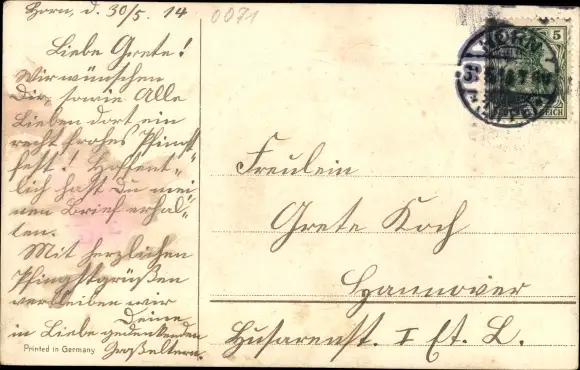 Horn, d. 30/5. 14
0071
Liebe Grete!
Wir wünschen
Dir, sowie Alle
Lieben dort ein
recht frohes Pfingst
fest! Hoffent„
lich hast Du mei„
nen Brief erhal„
ten.
Mit herzlichen
Pfingstgrüßen
verbleiben wir
Deine
in Liebe gedenkenden
Großeltern.
Printed in Germany
5
HORN
LIPPE
REICH
Freulein
Grete Koch
Hannover
Husarenst. I Et. L.